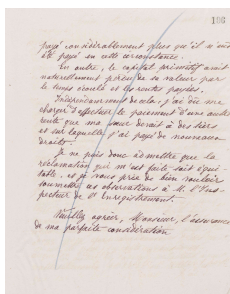 106
payé considérablement plus qu'il n'avait
été payé en cette circonstance.
En outre, le capital primitif avait
naturellement perdu de sa valeur par
le temps écoulé et les rentes payées.
Indépendamment de cela, j'ai dû me
charger d'effectuer le paiement d'une autre
rente que ma tante devait à des tiers
et sur laquelle j'ai payé de nouveaux
droits.
Je ne puis donc admettre que la
réclamation qui m'est faite soit équi-
table, et je vous prie de bien vouloir
soumettre ces observations à M. l'Ins-
pecteur de l'Enregistrement.
Veuillez agréer, Monsieur, l'assurance
de ma parfaite considération.